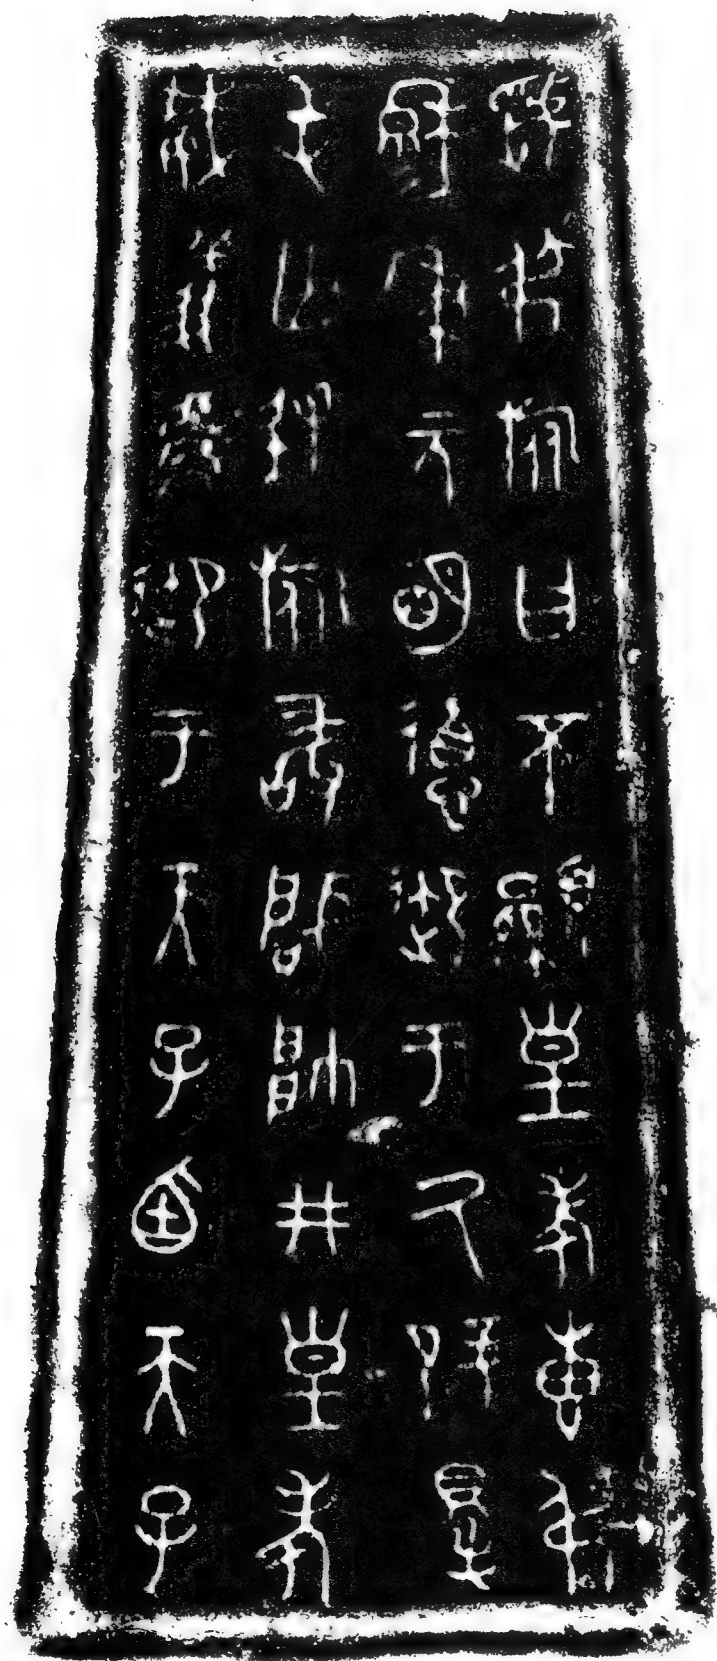 虢叔旅曰不顯皇考叀叔
穆=秉元明德御于氒辟得
屯亡敃旅敢肈帥井皇考
威義御于天子迺天子